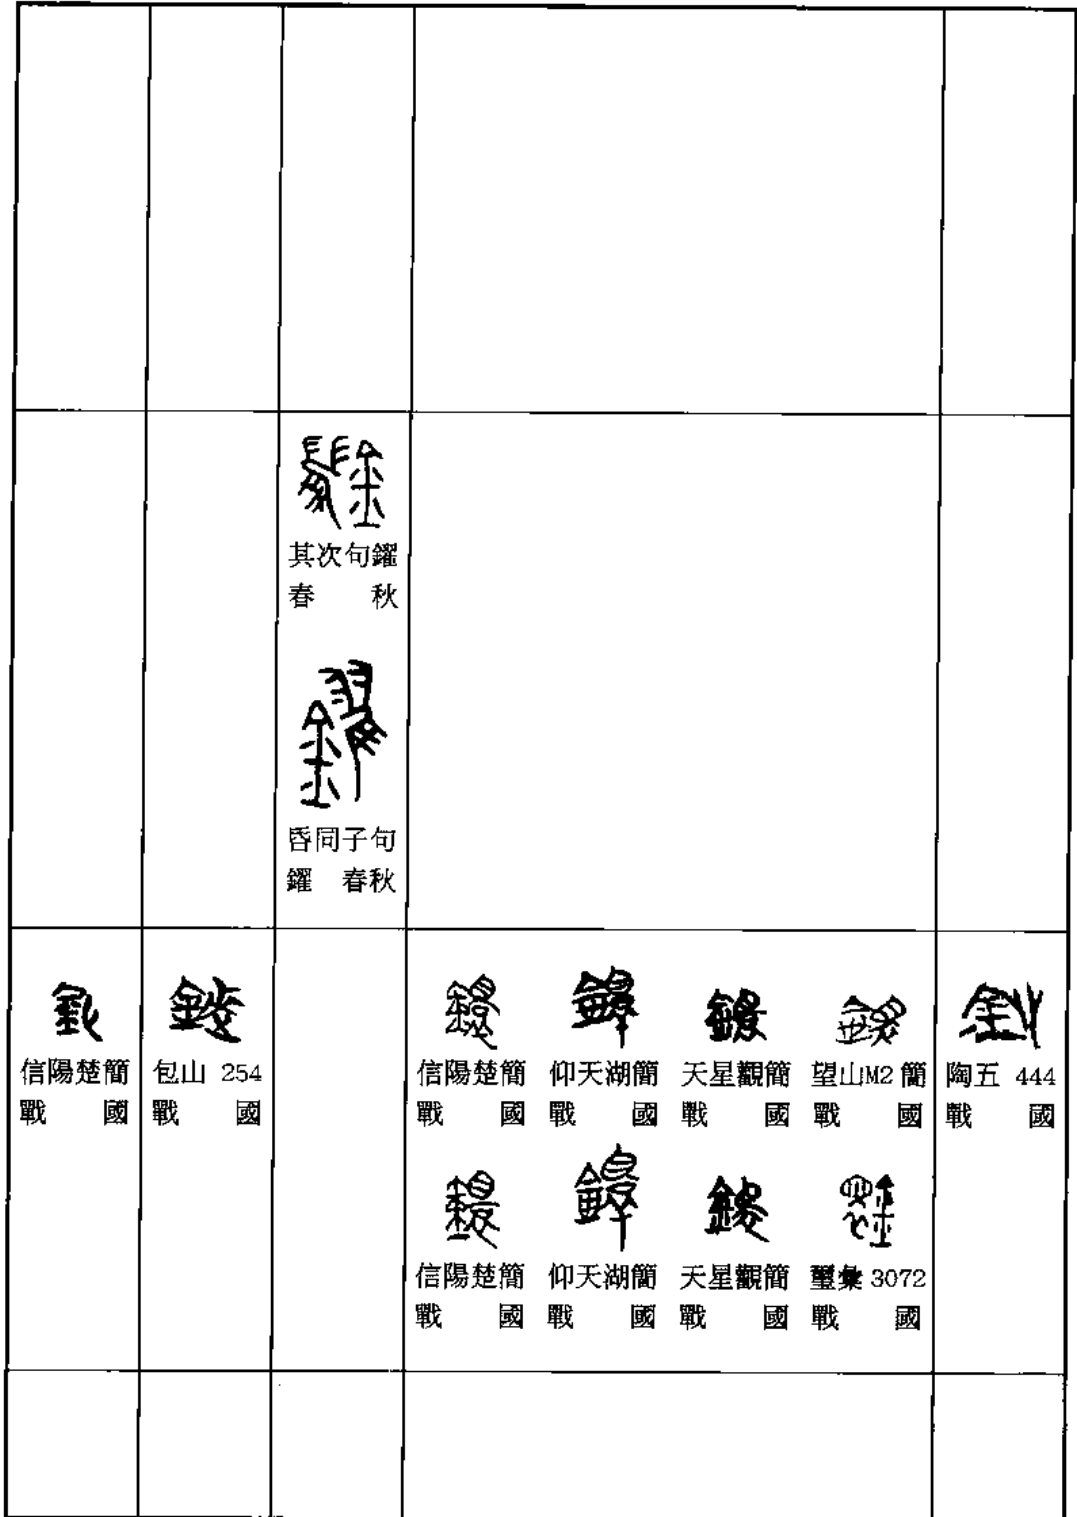 其次句鑃
春 秋
昏同子句
鑃 春秋
信陽楚簡
戰 國
包山 254
戰 國
信陽楚簡
戰 國
仰天湖簡
戰 國
天星觀簡
戰 國
望山M2簡
戰 國
陶五 444
戰 國
信陽楚簡
戰 國
仰天湖簡
戰 國
天星觀簡
戰 國
璽彙 3072
戰 國